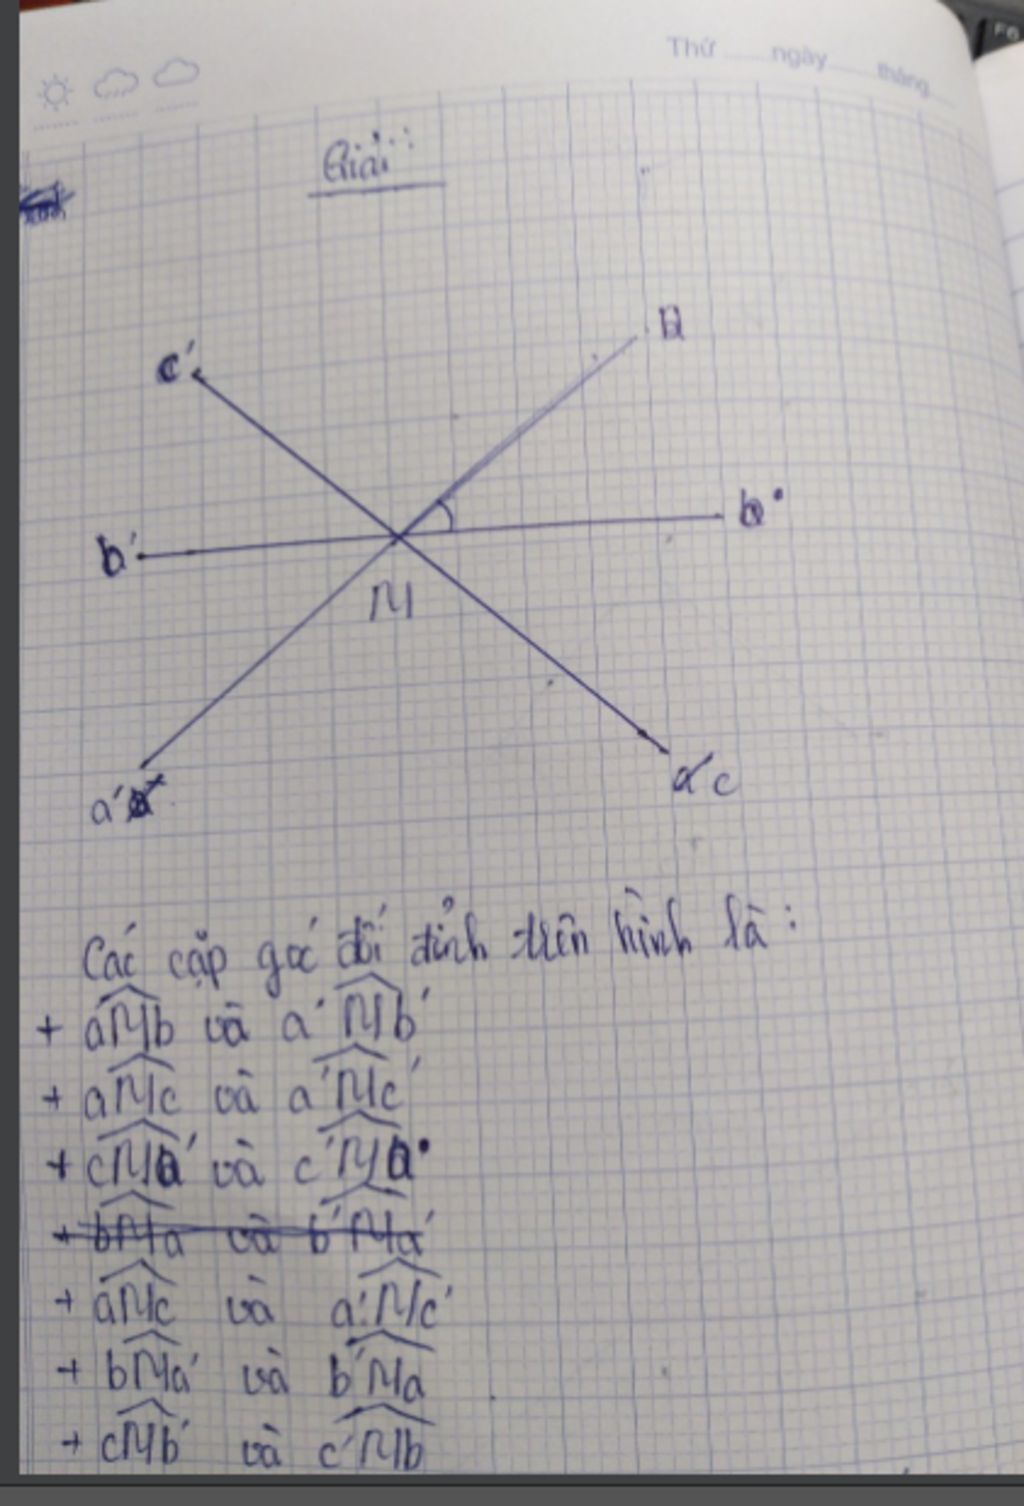 Thứ ngày tháng
Giải:
c'
a
b
b'
M
a'
c
Các cặp góc đối đỉnh trên hình là:
+ aMb và a'Mb'
+ aMc và a'Mc'
+ cMa' và c'Ma
+ bMa và b'Ma'
+ aMc và a'Mc'
+ bMa' và b'Ma
+ cMb' và c'Mb